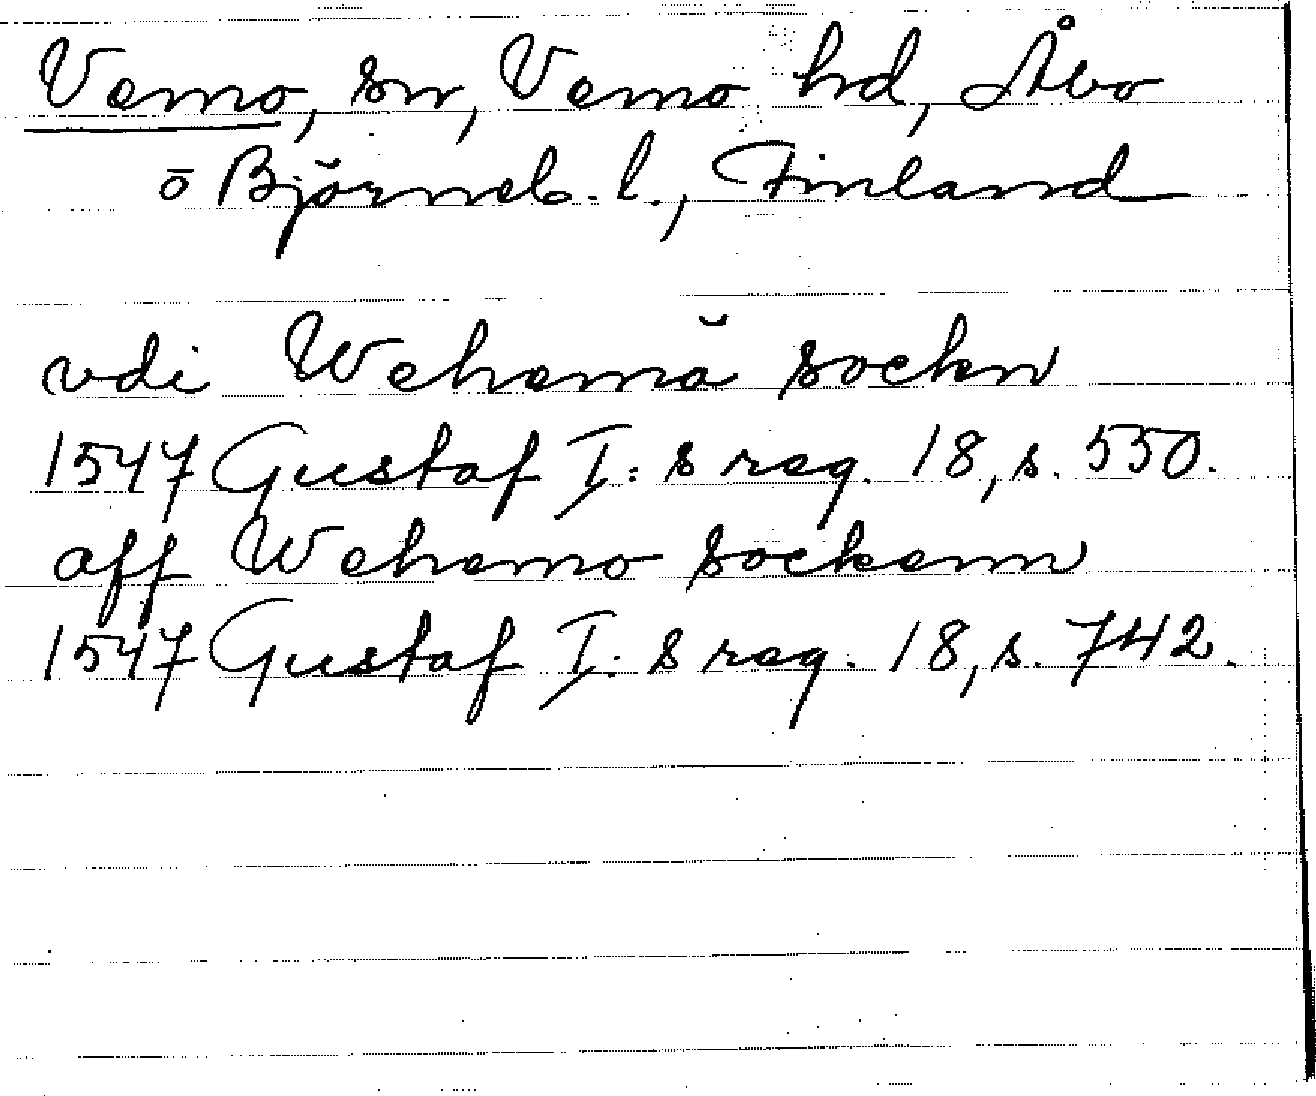 Vemo, sn, Vemo hd, Åbo
o Björneb. l., Finland
vdi Wehemä sockn
1547 Gustaf I:s reg. 18, s. 550.
aff Wehemo sockenn
1547 Gustaf I:s reg. 18, s. 742.